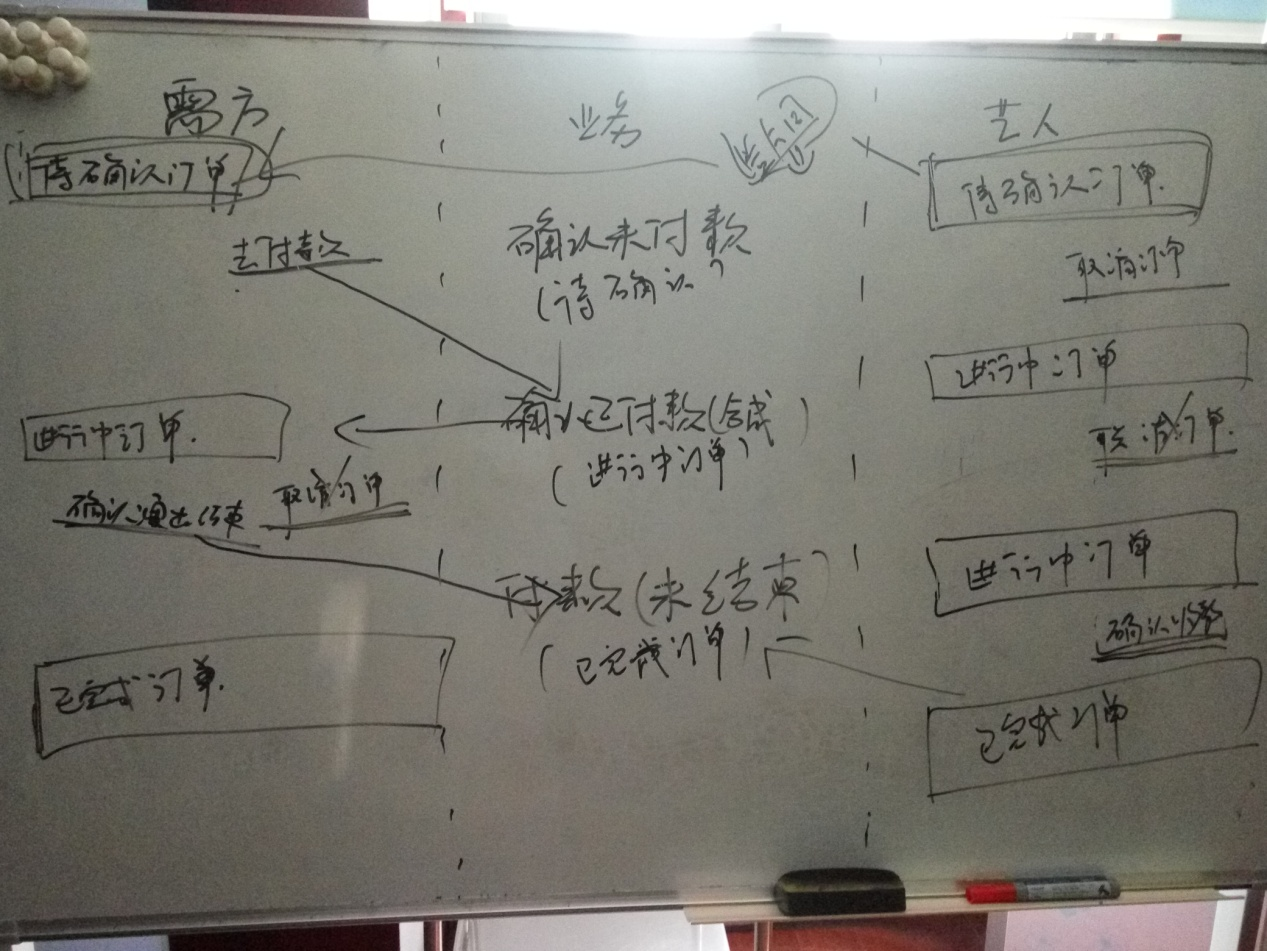 需方
待确认订单
去付款
进行中订单.
取消订单
已完成订单.
业务
确认未付款
(待确认)
确认已付款(合成)
(进行中订单)
付款(未结束)
(已完成订单)
艺人
待确认订单.
取消订单
进行中订单
取消订单.
进行中订单
确认收款
已完成订单